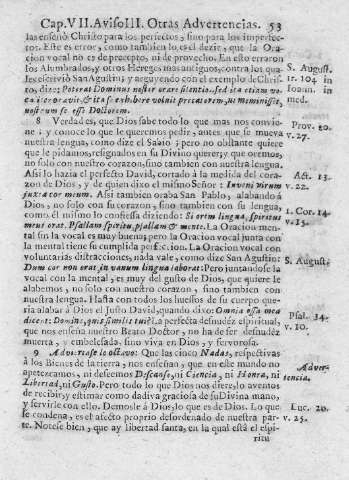 Cap. VII. Aviso III. Otras Advertencias. 53
las enseñò Christo para los perfectos, sino para los imperfec-
tos. Este es error, como tambien lo es el dezir, que la Ora-
cion vocal no es de precepto, ni de provecho. En esto erraron
los Alumbrados, y otros Hereges mas antiguos, contra los qua-
les escriviò San Agustin; y arguyendo con el exemplo de Chris-
to, dize: Poterat Dominus noster orare silentio. sed ita etiam vo-
ca
nostrum se esse Doctorem.
8 Verdad es, que Dios sabe todo lo que mas nos convie-
ne; y conoce lo que le queremos pedir, antes que se mueva
nuestra lengua, como dize el Sabio; pero no obstante quiere
que le pidamos, resignados en su Divino querer; y que oremos,
no solo con nuestro corazon, sino tambien con nuestra lengua.
Assi lo hazia el perfecto David, cortado à la medida del cora-
zon de Dios, y de quien dixo el mismo Señor: Inveni virum
juxta cor meum. Assi tambien oraba San Pablo, alabando à
Dios, no solo con su corazon, sino tambien con su lengua,
como èl mismo lo confiessa diziendo: Si orem lingua, spiritus
meus orat. Psallam spiritu, psallam & mente. La Oracion men-
tal sin la vocal es muy buena; pero la Oracion vocal junta con
la mental tiene su cumplida perfeccion. La Oracion vocal con
voluntarias distracciones, nada vale, como dize San Agustin:
Dum cor non orat, in vanum lingua laborat: Pero juntandose la
vocal con la mental, es muy del gusto de Dios, que quiere le
alabemos, no solo con nuestro corazon, sino tambien con
nuestra lengua. Hasta con todos los huessos de su cuerpo que-
ria alabar à Dios el Justo David, quando dixo: Omnia ossa mea
dicent: Domine, quis similis tui? La perfecta desnudèz espiritual,
que nos enseña nuestro Beato Doctor, no ha de ser desnudèz
muerta, y embelesada, sino viva en Dios, y fervorosa.
9 Advertase lo octavo: Que las cinco Nadas, respectivas
à los Bienes de la tierra, nos enseñan, que en este mundo no
apetezcamos, ni deseemos Descanso, ni Ciencia, ni Honra, ni
Libertad, ni Gusto. Pero todo lo que Dios nos diere, lo avemos
de recibir, y estimar como dadiva graciosa de su Divina mano,
y servirle con ello. Demosle à Dios, lo que es de Dios. Lo que
se condena, es el afecto proprio desordenado de nuestra par-
te. Notese bien, que ay libertad santa, en la qual està el espi-
ritu
S. August.
tr. 104 in
Ioann. in
med.
Prov. 20.
v. 27.
Act. 13.
v. 22.
1. Cor. 14.
v. 15.
S. August.
Psal. 34.
v. 10.
Adver-
tencia.
Luc. 20.
v. 25.